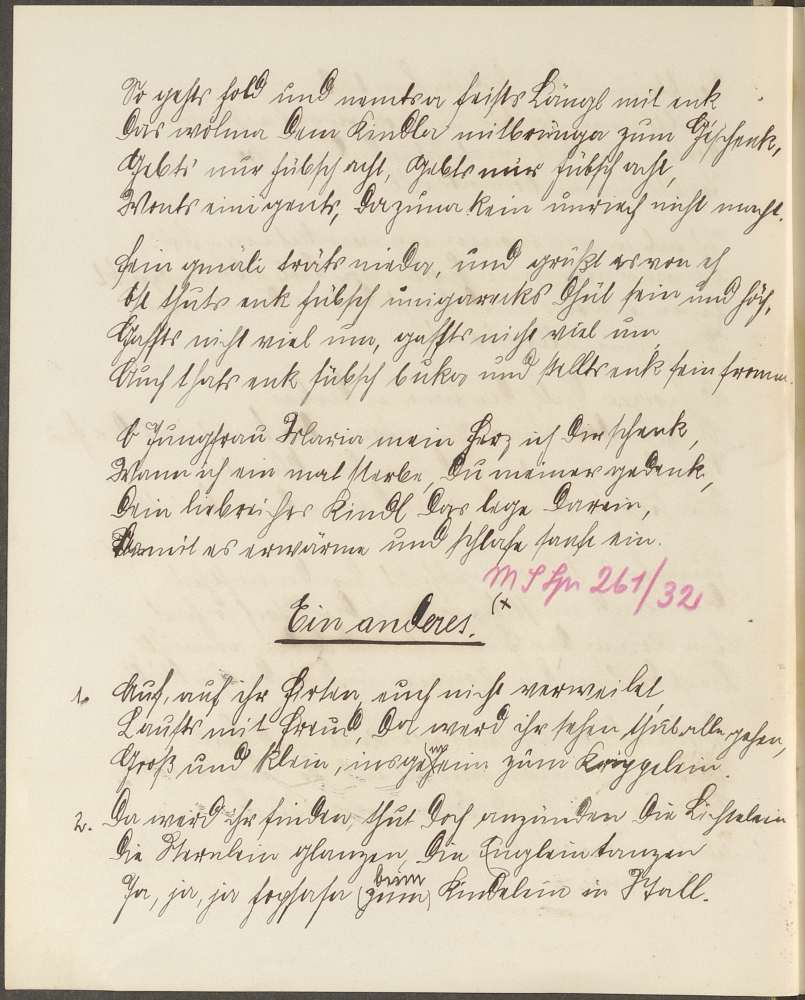 So gehts hold und nemts a feists Lämpl mit enk
Das wölma dem Kindla mitbringa zum Geschenk,
Gebts nur hübsch acht, Gebts nur hübsch acht,
Wonts eini gents, dazuna kein unrech nicht macht.
Fein gmäli träts nieda, und grüßt es von eh
thuts enk hübsch fein und höf,
Gaffts nicht viel um, gaffts nicht viel um
Auch thats enk hübsch buka und stellts enk fein fromm.
O Jungfrau Maria mein Herz ich dir schenk,
Wann ich ein mal sterbe, Du meiner gedenk,
Dein liebreiches Kindl das lege darein,
Damit es erwärme und schlafe sanft ein.
M S Sp 261/32
Ein anderes. (x
1. Auf, auf ihr Hirten, euch nicht verweilet,
Laufts mit Freud, Da werd ihr sehen, thüts alle gehen,
Groß und klein, insgeheim zum Krippelein.
2. Da werd ihr finden, thut doch anzünden die Lichtelein
Die Sternlein glanzen, die Englein tanzen
beim
Ja, ja, ja hopsasa (zum) Kindelein in Stall.